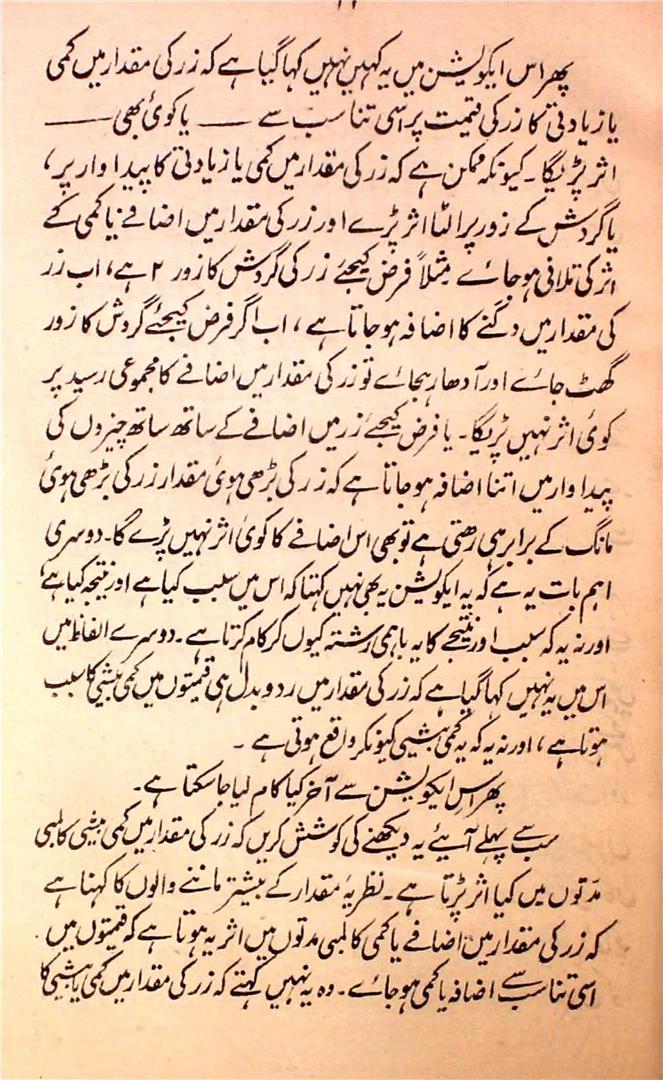 پھر اس ایکویشن میں یہ کہیں نہیں کہا گیا ہے کہ زر کی مقدار میں کمی
یا زیادتی کا زر کی قیمت پر اسی تناسب سے —— یا کوئی بھی ——
اثر پڑیگا۔ کیونکہ ممکن ہے کہ زر کی مقدار میں کمی یا زیادتی کا پیداوار پر،
یا گردش کے زور پر الٹا اثر پڑے اور زر کی مقدار میں اضافے یا کمی کے
اثر کی تلافی ہو جائے مثلاً فرض کیجئے زر کی گردش کا زور ۲ ہے، اب زر
کی مقدار میں دگنے کا اضافہ ہو جاتا ہے، اب اگر فرض کیجئے گردش کا زور
گھٹ جائے اور آدھا رہجائے تو زر کی مقدار میں اضافے کا مجموعی رسید پر
کوئی اثر نہیں پڑیگا۔ یا فرض کیجئے زر میں اضافے کے ساتھ ساتھ چیزوں کی
پیداوار میں اتنا اضافہ ہو جاتا ہے کہ زر کی بڑھی ہوئی مقدار زر کی بڑھی ہوئی
مانگ کے برابر ہی رہتی ہے تو بھی اس اضافے کا کوئی اثر نہیں پڑے گا۔ دوسری
اہم بات یہ ہے کہ یہ ایکویشن یہ بھی نہیں کہتا کہ اس میں سبب کیا ہے اور نتیجہ کیا ہے
اور نہ یہ کہ سبب اور نتیجے کا یہ باہمی رشتہ کیوں کر کام کرتا ہے۔ دوسرے الفاظ میں
اس میں یہ نہیں کہا گیا ہے کہ زر کی مقدار میں ردوبدل ہی قیمتوں میں کمی بیشی کا سبب
ہوتا ہے، اور نہ یہ کہ یہ کمی بیشی کیونکر واقع ہوتی ہے۔
پھر اس ایکویشن سے آخر کیا کام لیا جا سکتا ہے۔
سب سے پہلے آئیے یہ دیکھنے کی کوشش کریں کہ زر کی مقدار میں کمی بیشی کا لمبی
مدّتوں میں کیا اثر پڑتا ہے۔ نظریۂ مقدار کے بیشتر ماننے والوں کا کہنا ہے
کہ زر کی مقدار میں اضافے یا کمی کا لمبی مدتوں میں اثر یہ ہوتا ہے کہ قیمتوں میں
اسی تناسب سے اضافہ یا کمی ہو جائے۔ وہ یہ نہیں کہتے کہ زر کی مقدار میں کمی یا بیشی کا